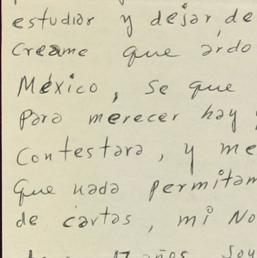 estudiar y dejar de
Creame que ardo
México, se que
Para merecer hay
Contestara, y me
que nada permitam
de cartas, mi No
17 años Soy